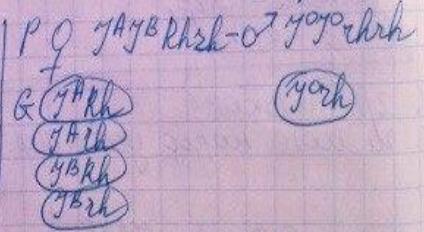 P ♀ JᴬJᴮRhrh – ♂ J⁰J⁰rhrh
G JᴬRh J⁰rh
Jᴬrh
JᴮRh
Jᴮrh